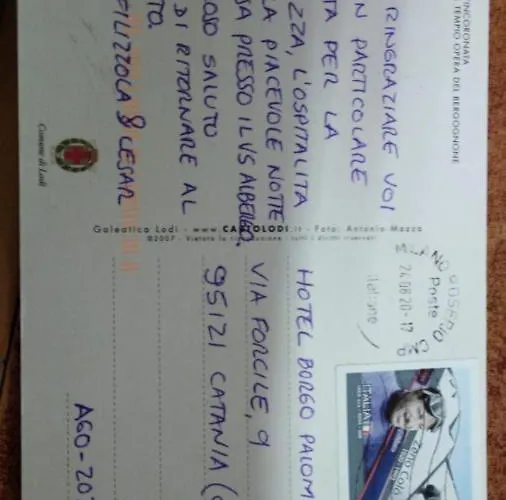 INCORONATA
TEMPIO OPERA DEL BERGOGNONE
RINGRAZIARE VOI
PARTICOLARE
PER LA
L'OSPITALITA
PIACEVOLE NOTTE
PRESSO IL VS ALBERGO.
SALUTO
DI RITORNARE AL
FILIZZOLA & CESAR
Comune di Lodi
Galeatica Lodi - www.CARTOLODI.it - Foto: Antonio Mazza
©2007 - Vietata la riproduzione - tutti i diritti riservati
MILANO
Poste
italiane
24 08 20-17
ITALIA
HOTEL BORGO PALOM
VIA FORCILE, 9
95121 CATANIA (
AGO-20